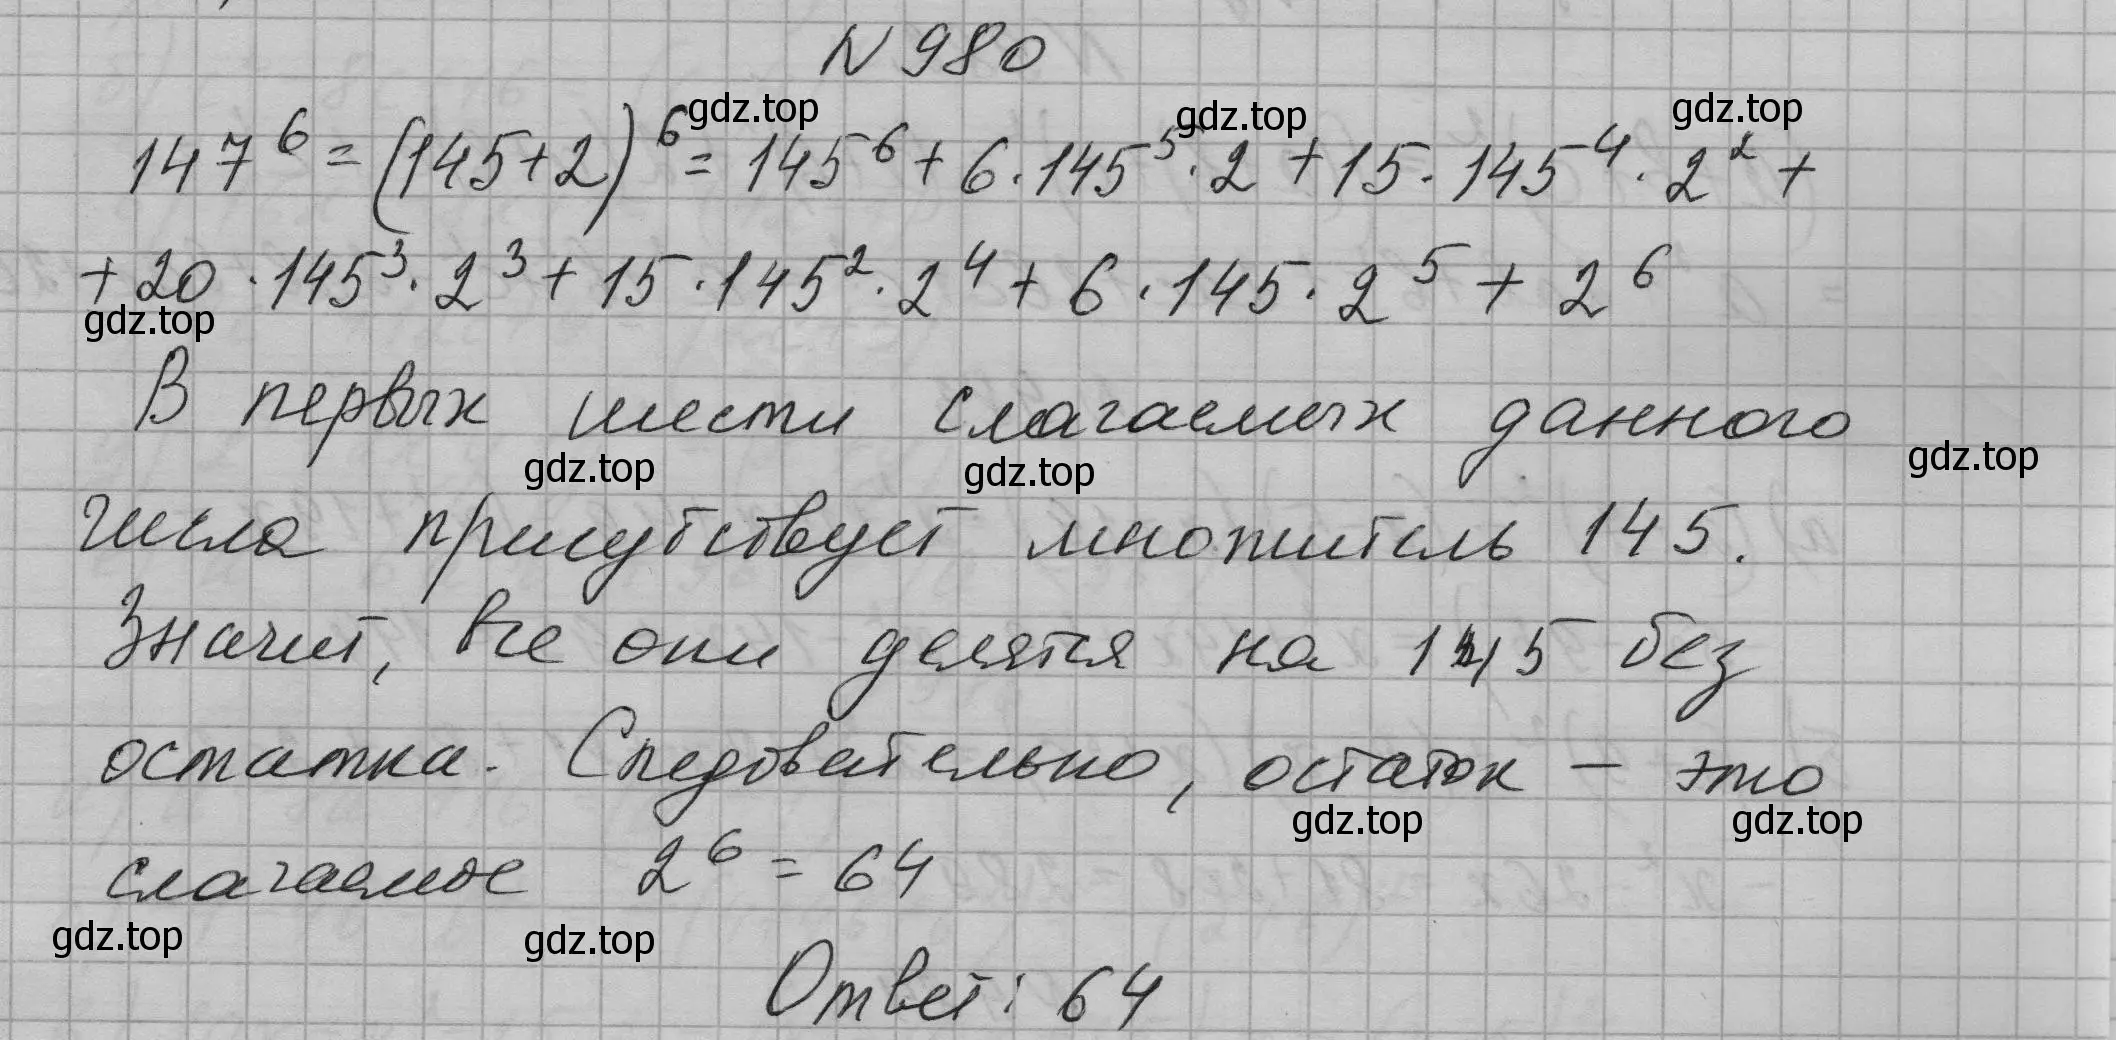 N 980
147^6 = (145+2)^6 = 145^6 + 6·145^5·2 + 15·145^4·2^2 +
+ 20·145^3·2^3 + 15·145^2·2^4 + 6·145·2^5 + 2^6
В первых шести слагаемых данного
числа присутствует множитель 145.
Значит, все они делятся на 145 без
остатка. Следовательно, остаток – это
слагаемое 2^6 = 64
Ответ: 64
gdz.top gdz.top gdz.top
gdz.top
gdz.top gdz.top gdz.top
gdz.top gdz.top
gdz.top gdz.top